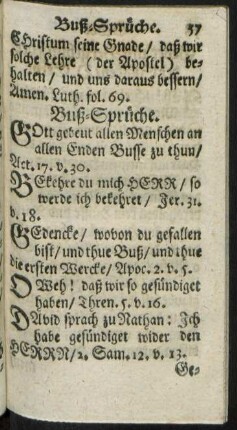 Buß-Sprüche. 37
CHristum seine Gnade/ daß wir
solche Lehre (der Apostel) be-
halten/ und uns daraus bessern/
Amen. Luth. fol. 69.
Buß-Sprüche.
GOtt gebeut allen Menschen an
allen Enden Busse zu thun/
Act. 17. v. 30.
BEkehre du mich HERR/ so
werde ich bekehret/ Jer. 31.
v. 18.
GEdencke/ wovon du gefallen
bist/ und thue Buß/ und thue
die ersten Wercke/ Apoc. 2. v. 5.
O Weh! daß wir so gesündiget
haben/ Thren. 5. v. 16.
DAvid sprach zu Nathan: Ich
habe gesündiget wider den
HERRN/ 2. Sam. 12. v. 13.
Ge-